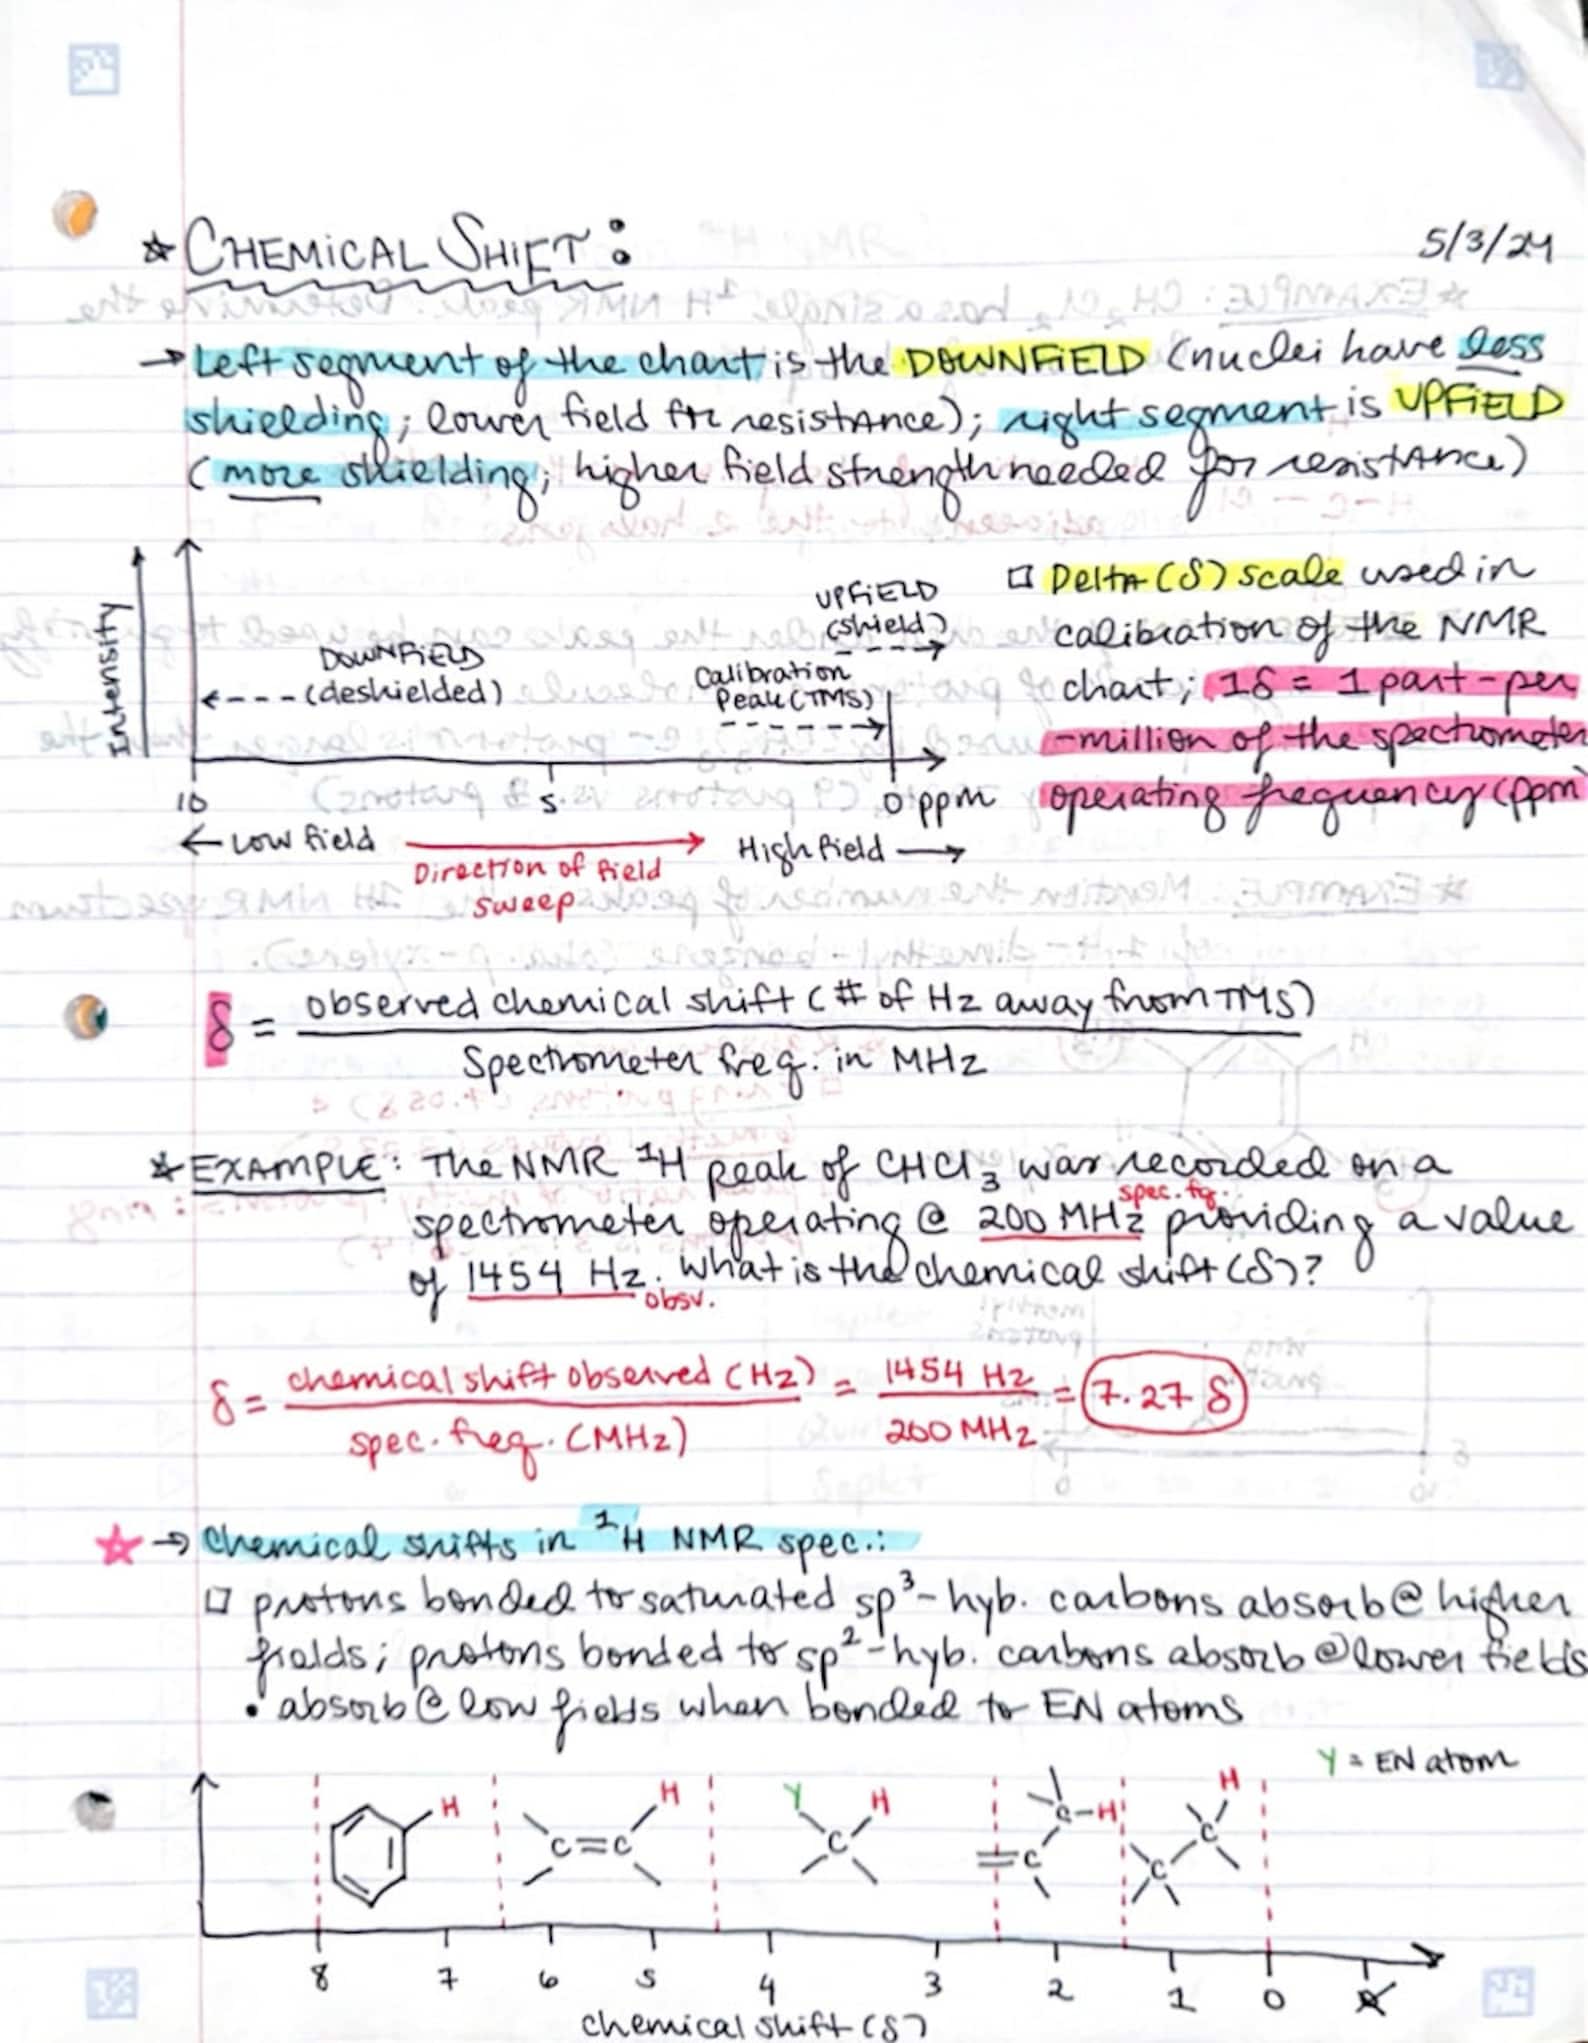 ☆ CHEMICAL SHIFT:
5/3/24
→ Left segment of the chart is the DOWNFIELD (nuclei have less
shielding; lower field for resistance); right segment is UPFIELD
(more shielding; higher field strength needed for resistance)
Intensity
DOWNFIELD
(deshielded)
UPFIELD
(shield)
Calibration
Peak (TMS)
10 5 0 ppm
← Low field
Direction of field
sweep
High field →
□ Delta (δ) scale used in
calibration of the NMR
chart; 1δ = 1 part-per
-million of the spectrometer
operating frequency (ppm)
δ = observed chemical shift (# of Hz away from TMS)
Spectrometer freq. in MHz
☆ EXAMPLE: The NMR ¹H peak of CHCl₃ was recorded on a
spec. fq.
spectrometer operating @ 200 MHz providing a value
of 1454 Hz. What is the chemical shift (δ)?
obsv.
δ = chemical shift observed (Hz) = 1454 Hz = 7.27 δ
spec. freq. (MHz) 200 MHz
☆ → Chemical shifts in ¹H NMR spec.:
□ protons bonded to saturated sp³-hyb. carbons absorb @ higher
fields; protons bonded to sp²-hyb. carbons absorb @ lower fields
• absorb @ low fields when bonded to EN atoms
Y = EN atom
H
C=C H
Y C H
=C C-H
C C H
8 7 6 5 4 3 2 1 0
chemical shift (δ)